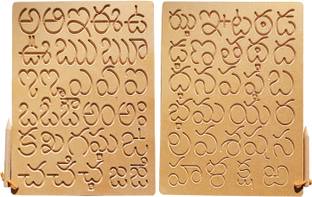 అ ఆ ఇ ఈ ఉ
ఊ ఋ ౠ
ఎ ఏ ఐ
ఒ ఓ ఔ అం అః
క ఖ గ ఘ ఙ
చ ఛ జ
ఞ ట ఠ డ
ఢ ణ త థ ద
ధ న ప ఫ బ
భ మ య ర
ల వ శ ష స
హ ళ క్ష ఱ